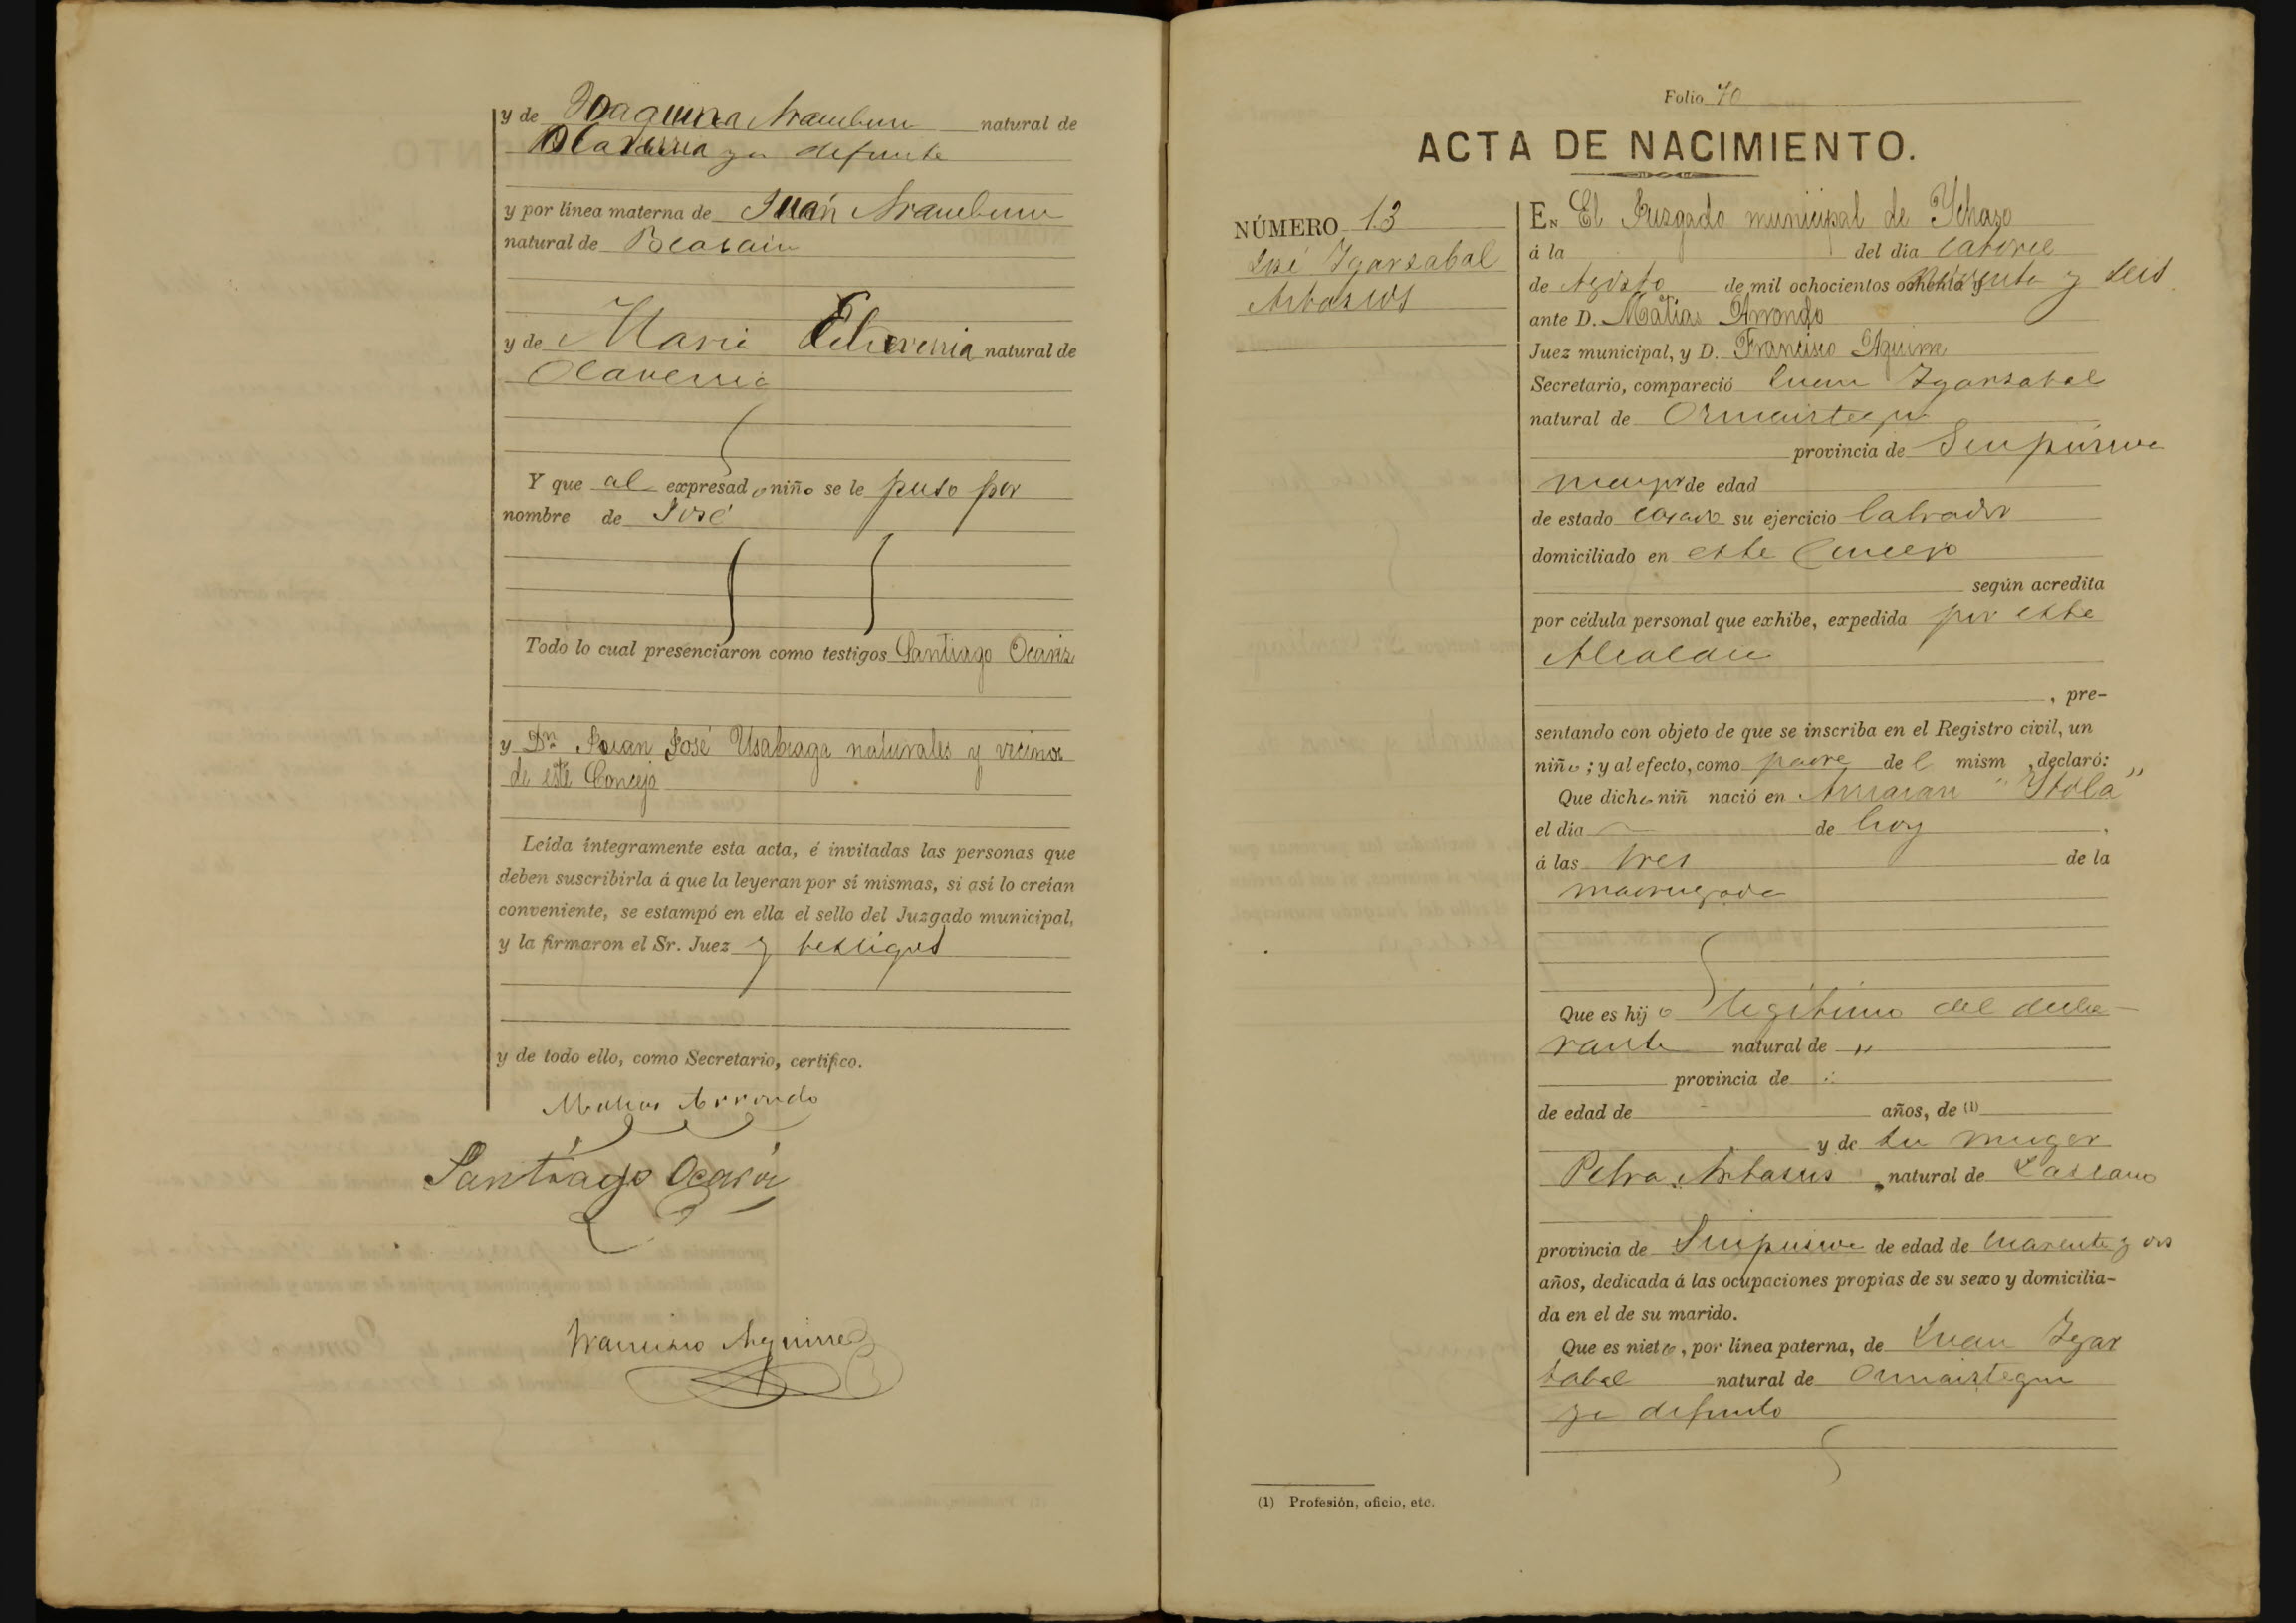 y de Joaquina Aramburu natural de
Olaverria ya defunta
y por línea materna de Juan Aramburu
natural de Beasain
y de Maria Echeverria natural de
Olaverria
Y que al expresado niño se le puso por
nombre de José
Todo lo cual presenciaron como testigos Santiago Ocariz
y Dn. Juan José Usabiaga naturales y vecinos
de este Concejo
Leída íntegramente esta acta, é invitadas las personas que
deben suscribirla á que la leyeran por sí mismas, si así lo creían
conveniente, se estampó en ella el sello del Juzgado municipal,
y la firmaron el Sr. Juez y testigos
y de todo ello, como Secretario, certifico.
Matias Arrondo
Santiago Ocariz
Francisco Aguirre
Folio 70
ACTA DE NACIMIENTO.
NÚMERO 13
José Ygarzabal
En El Juzgado municipal de Ychaso
á la del día catorce
de Agosto de mil ochocientos ochenta y noventa y seis
ante D. Matias Arrondo
Juez municipal, y D. Francisco Aguirre
Secretario, compareció Juan Ygarzabal
natural de Ormaiztegui
provincia de Guipúzcoa
mayor de edad
de estado casado su ejercicio labrador
domiciliado en este Concejo
según acredita
por cédula personal que exhibe, expedida por esta
Alcaldia
, pre-
sentando con objeto de que se inscriba en el Registro civil, un
niño; y al efecto, como padre del mism , declaró:
Que dicho niñ nació en Arriaran "Ybola"
el día de hoy
á las tres de la
madrugada
Que es hijo legitimo del decla-
rante natural de "
provincia de
de edad de años, de (1)
y de su muger
Petra natural de Lazcano
provincia de Guipuzcoa de edad de cuarenta y dos
años, dedicada á las ocupaciones propias de su sexo y domicilia-
da en el de su marido.
Que es nieto, por línea paterna, de Juan Ygar
zabal natural de Ormaiztegui
ya defunto
(1) Profesión, oficio, etc.